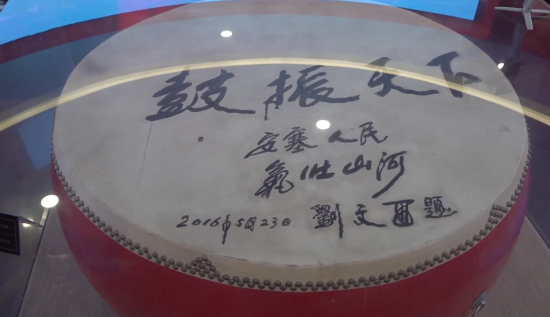 鼓振天下
安塞人民
氣壯山河
2016年5月23日 劉文西題